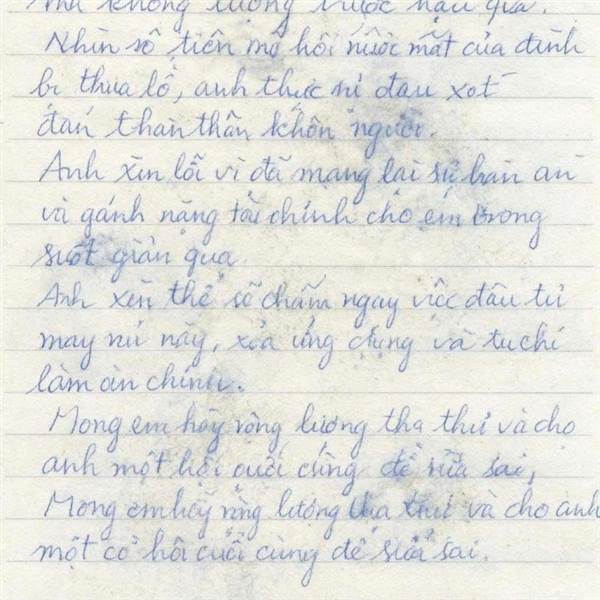 mà không lường trước hậu quả.
Nhìn số tiền mồ hôi nước mắt của đình
bị thua lỗ, anh thực sự đau xót
thân khốn người.
Anh xin lỗi vì đã mang lại sự bàn an
và gánh nặng tài chính cho em trong
suốt giản qua.
Anh xin thề sẽ chấm ngay việc đầu tư
may rủi này, xóa ứng dụng và tu chí
làm ăn chính.
Mong em hãy rộng lượng tha thứ và cho
anh một hội cuối cùng để sửa sai,
Mong em hãy rộng lượng tha thứ và cho anh
một cơ hội cuối cùng để sửa sai.